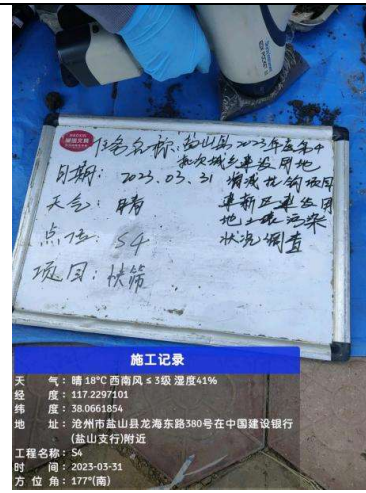 任务名称：盐山县2023年度第4
批次城乡建设用地
日期：2023.03.31 增减挂钩项目
天气：晴 建新区建设用
地土壤污染
点位：S4 状况调查
项目：快筛
施工记录
天 气：晴 18℃ 西南风 ≤ 3级 湿度41%
经 度：117.2297101
纬 度：38.0661854
地 址：沧州市盐山县龙海东路380号在中国建设银行
(盐山支行)附近
工程名称：S4
时 间：2023-03-31
方 位 角：177°(南)